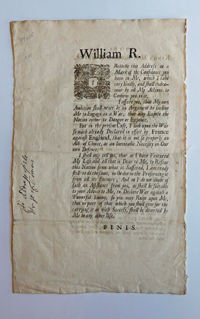 William R.
Receive this Address as a
Mark of the Confidence you
have in Me, which I take
very kindly, and shall endeavour
by all My Actions to
Confirm you in it.
I assure you, that My own
Ambition shall never be an Argument to incline
Me to Engage in a War, that may Expose the
Nation either to Danger or Expence.
But in the present Case, I look upon the War
so much already Declared in effect by France
against England, that it is not so properly an
Act of Choice, as an Inevitable Necessity in Our
own Defence.
I shall only tell you, that as I have Ventured
My Life and all that is Dear to Me, to Rescue
this Nation from what it Suffered, I am ready
still to do the same, in Order to the Preserving it
from all its Enemies; And as I do not doubt of
such an Assistance from you, as shall be suitable
to your Advice to Me, to Declare War against a
Powerful Enemy; So you may Relie upon Me,
that no part of that which you shall give for the
carrying it on with Success, shall be diverted by
Me to any other Use.
FINIS.